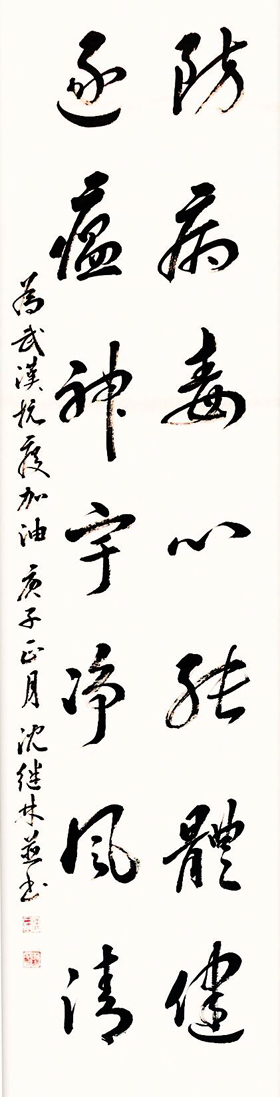 防病毒心能體健
逐瘟神宇净風清
為武漢抗疫加油 庚子正月 沈继林並书